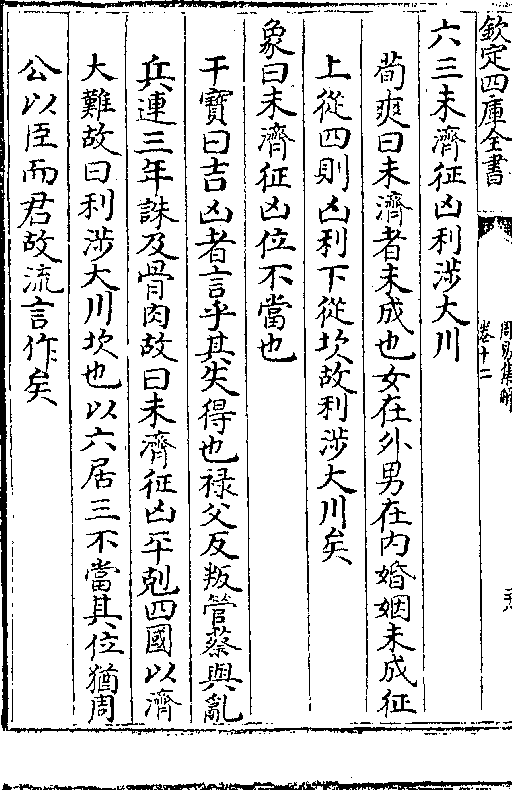 欽定四庫全書
周易集解
卷十二
六三未濟征凶利涉大川
荀爽曰未濟者未成也女在外男在内婚姻未成征
上從四則凶利下從坎故利涉大川矣
象曰未濟征凶位不當也
干寶曰吉凶者言乎其失得也禄父反叛管蔡與亂
兵連三年誅及骨肉故曰未濟征凶平剋四國以濟
大難故曰利涉大川坎也以六居三不當其位猶周
公以臣而君故流言作矣